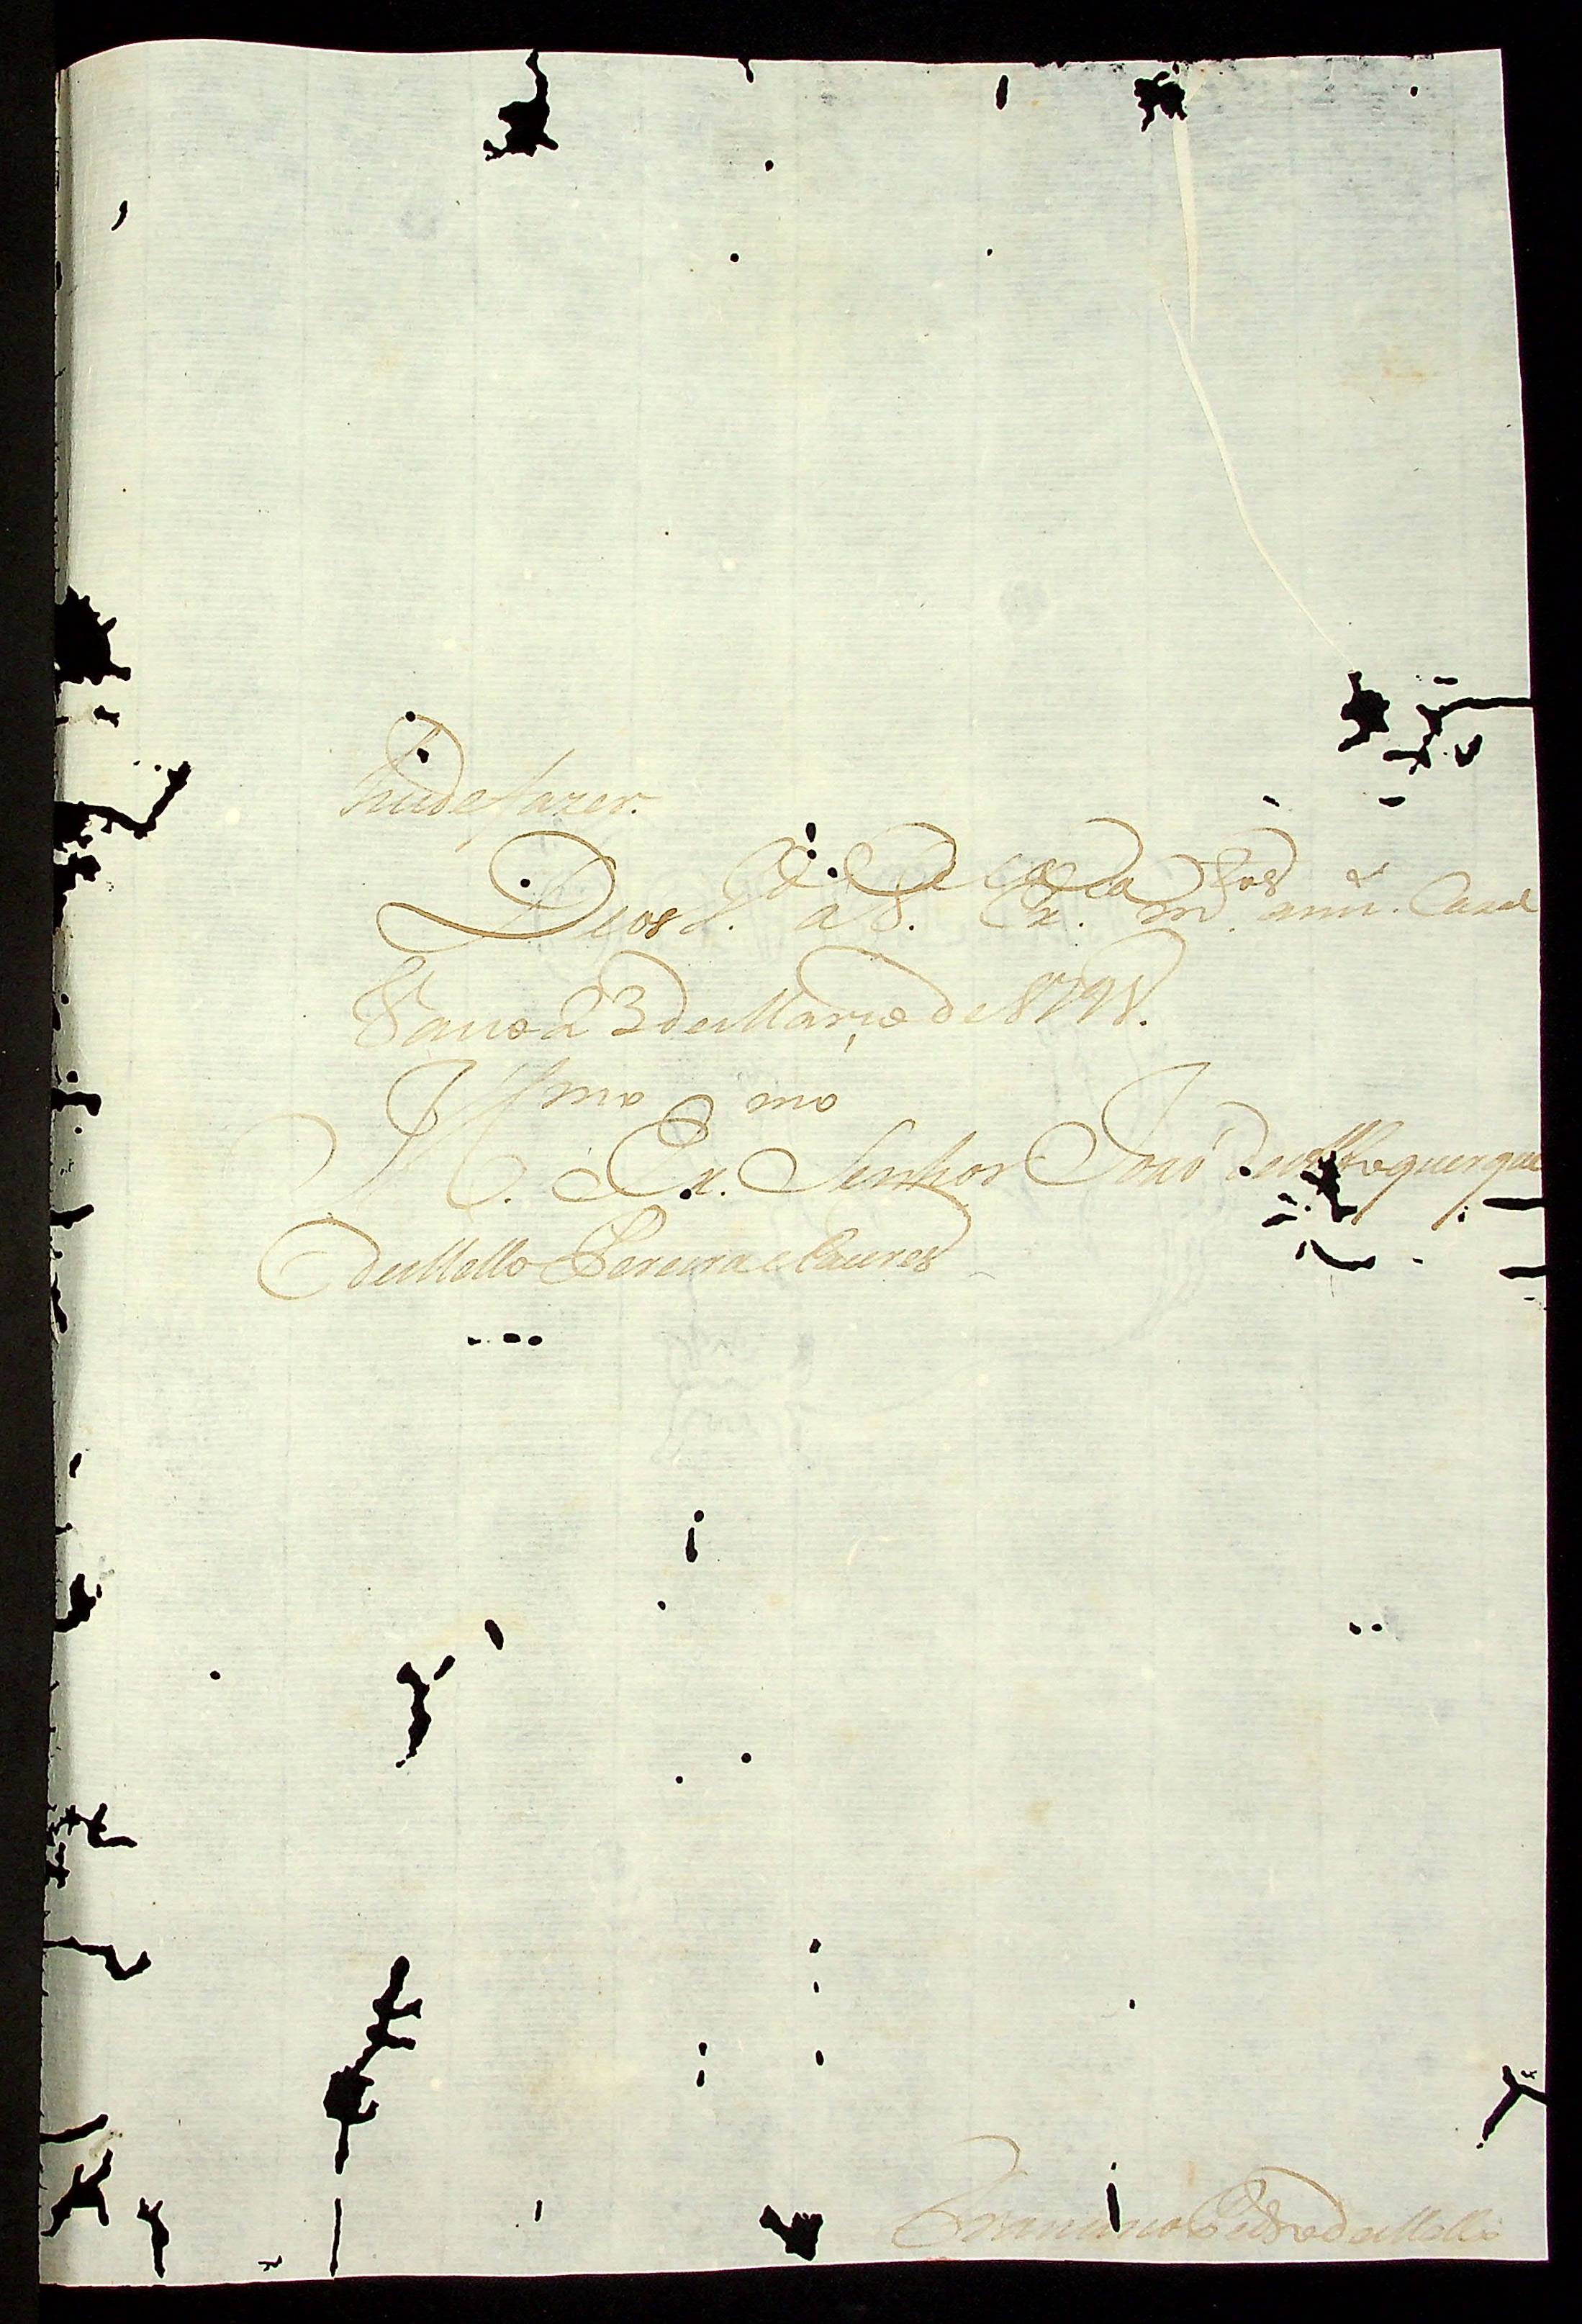 hude fazer.
Deos g.de a V. Ex.ca m.tos ann.s Casal
Vasco 23 de Março de 1798.
Ill.mo Ex.mo Senhor João de Albuquerque
de Mello Pereira e Caceres
Francisco Pedro de Mello